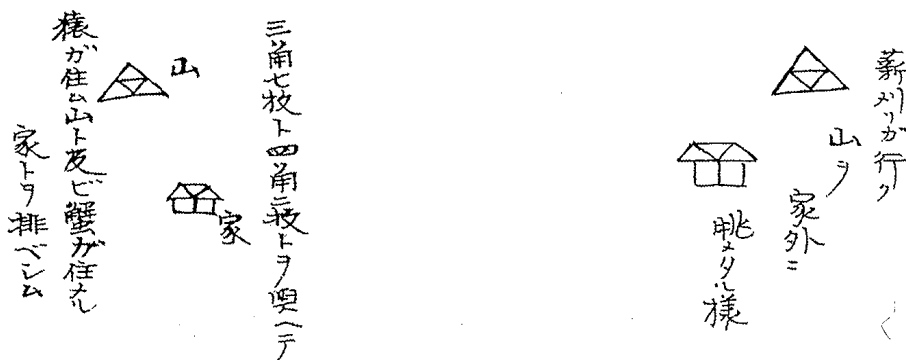 薪刈リガ行ク
山ヲ
家外ニ
眺メタル様
三角七枚ト四角二枚トヲ與ヘテ
山
家
猿ガ住ム山ト及ビ蟹ガ住メル
家トヲ排ベシム